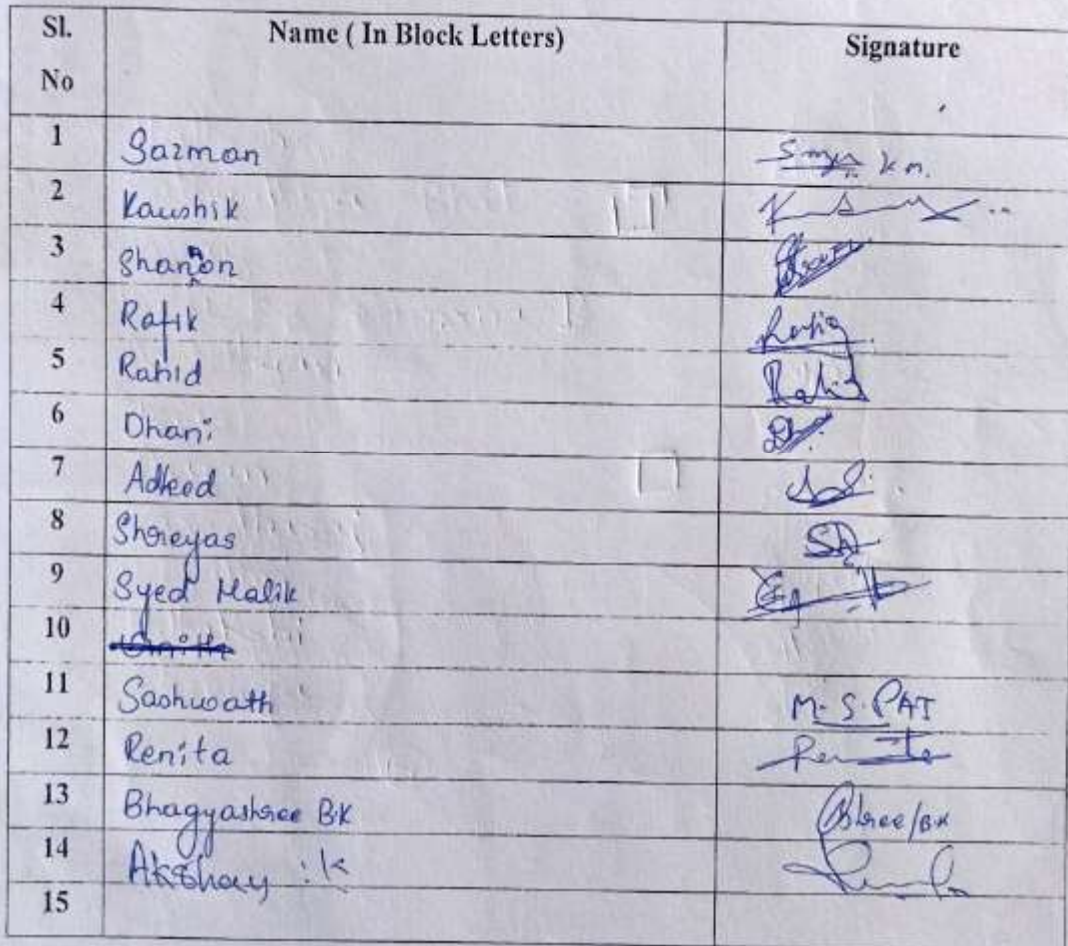 Sl. No Name ( In Block Letters) Signature
1 Sazman
2 Kaushik
3 Shannon
4 Rafik Rafiq
5 Rahid Rahid
6 Dhani
7 Adkeed
8 Shreyas
9 Syed Malik
10
11 Sashwath M. S. PAT
12 Renita
13 Bhagyashree BK Bshree/BK
14 Akshay :k
15